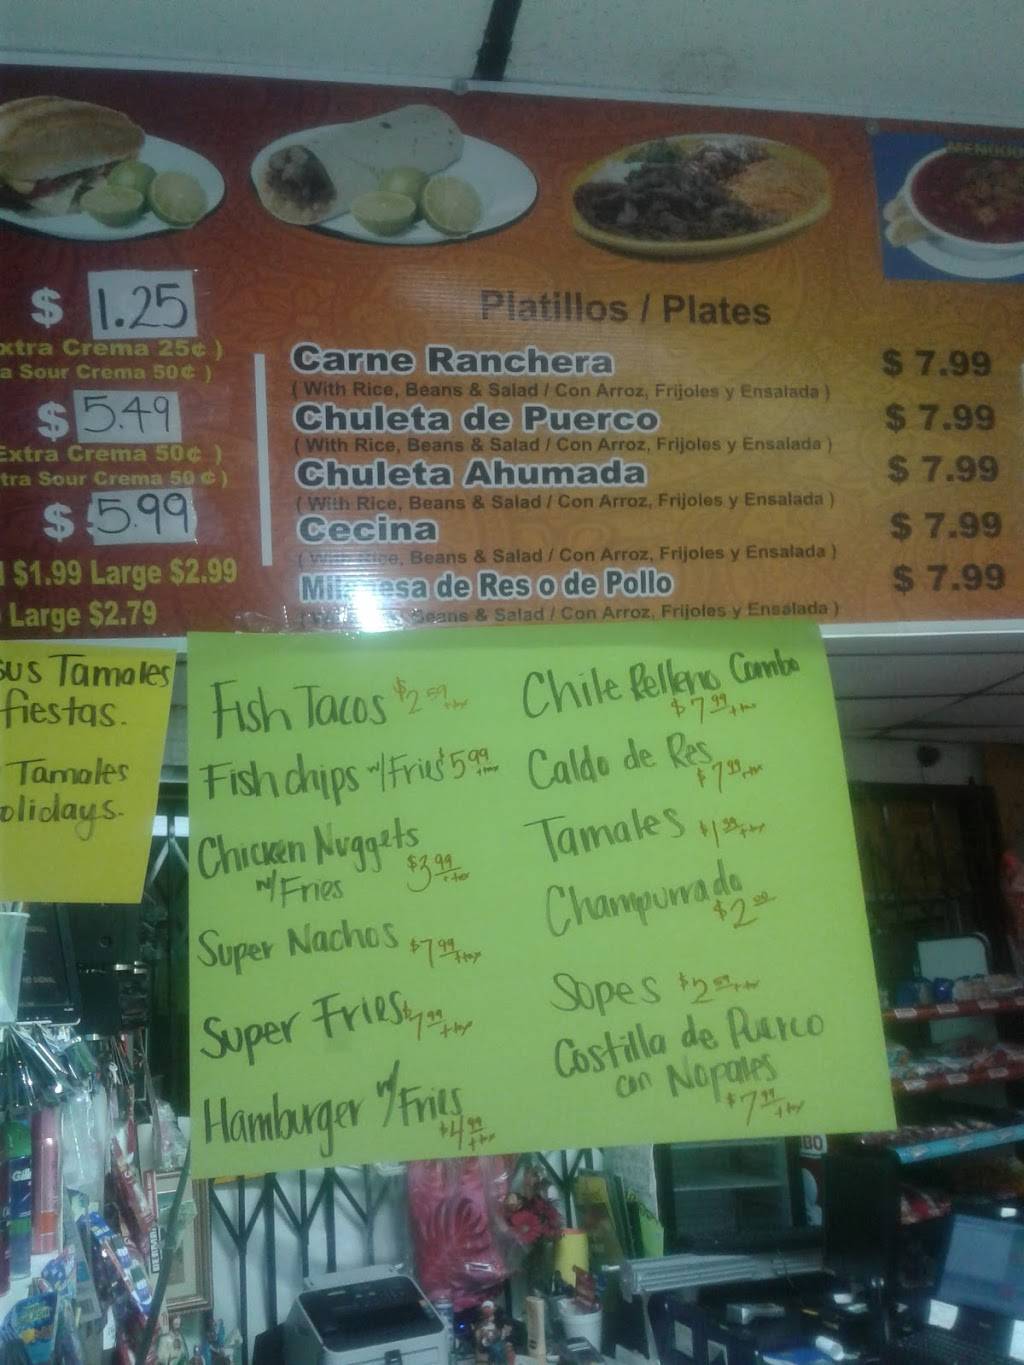 MENUDO
$ 1.25
xtra Crema 25¢ )
a Sour Crema 50¢ )
$ 5.49
Extra Crema 50¢ )
tra Sour Crema 50 ¢ )
$ 5.99
$1.99 Large $2.99
Large $2.79
Platillos / Plates
Carne Ranchera $ 7.99
( With Rice, Beans & Salad / Con Arroz, Frijoles y Ensalada )
Chuleta de Puerco $ 7.99
( With Rice, Beans & Salad / Con Arroz, Frijoles y Ensalada )
Chuleta Ahumada $ 7.99
( With Rice, Beans & Salad / Con Arroz, Frijoles y Ensalada )
Cecina $ 7.99
( With Rice, Beans & Salad / Con Arroz, Frijoles y Ensalada )
Milanesa de Res o de Pollo $ 7.99
Beans & Salad / Con Arroz, Frijoles y Ensalada )
sus Tamales
fiestas.
Tamales
olidays.
Fish Tacos $2.59 + tax
Fish chips w/Fries $5.99 + tax
Chicken Nuggets
w/Fries $3.99 + tax
Super Nachos $7.99 + tax
Super Fries $7.99 + tax
Hamburger w/Fries
$4.99 + tax
Chile Relleno Combo
$7.99 + tax
Caldo de Res
$7.99 + tax
Tamales $1.99 + tax
Champurrado
$2.00
Sopes $2.59 + tax
Costilla de Puerco
con Nopales
$7.99 + tax